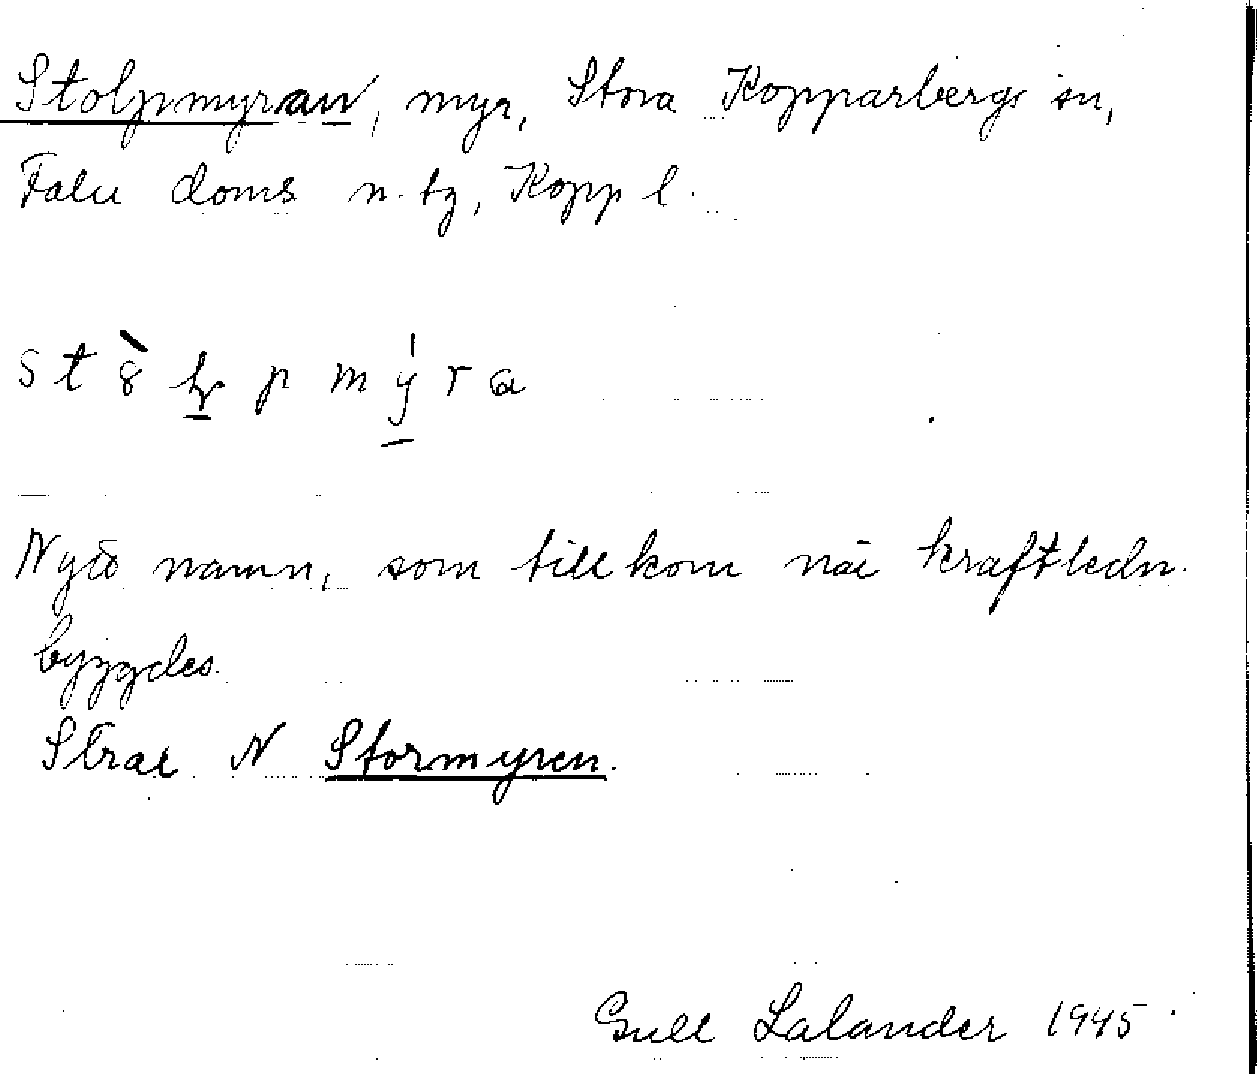 Stolpmyran, myr, Stora Kopparbergs sn,
Falu doms n. tg, Kopp l.
Nytt namn, som tillkom när kraftledn.
byggdes.
Strax N Stormyren.
Gull Lalander 1945